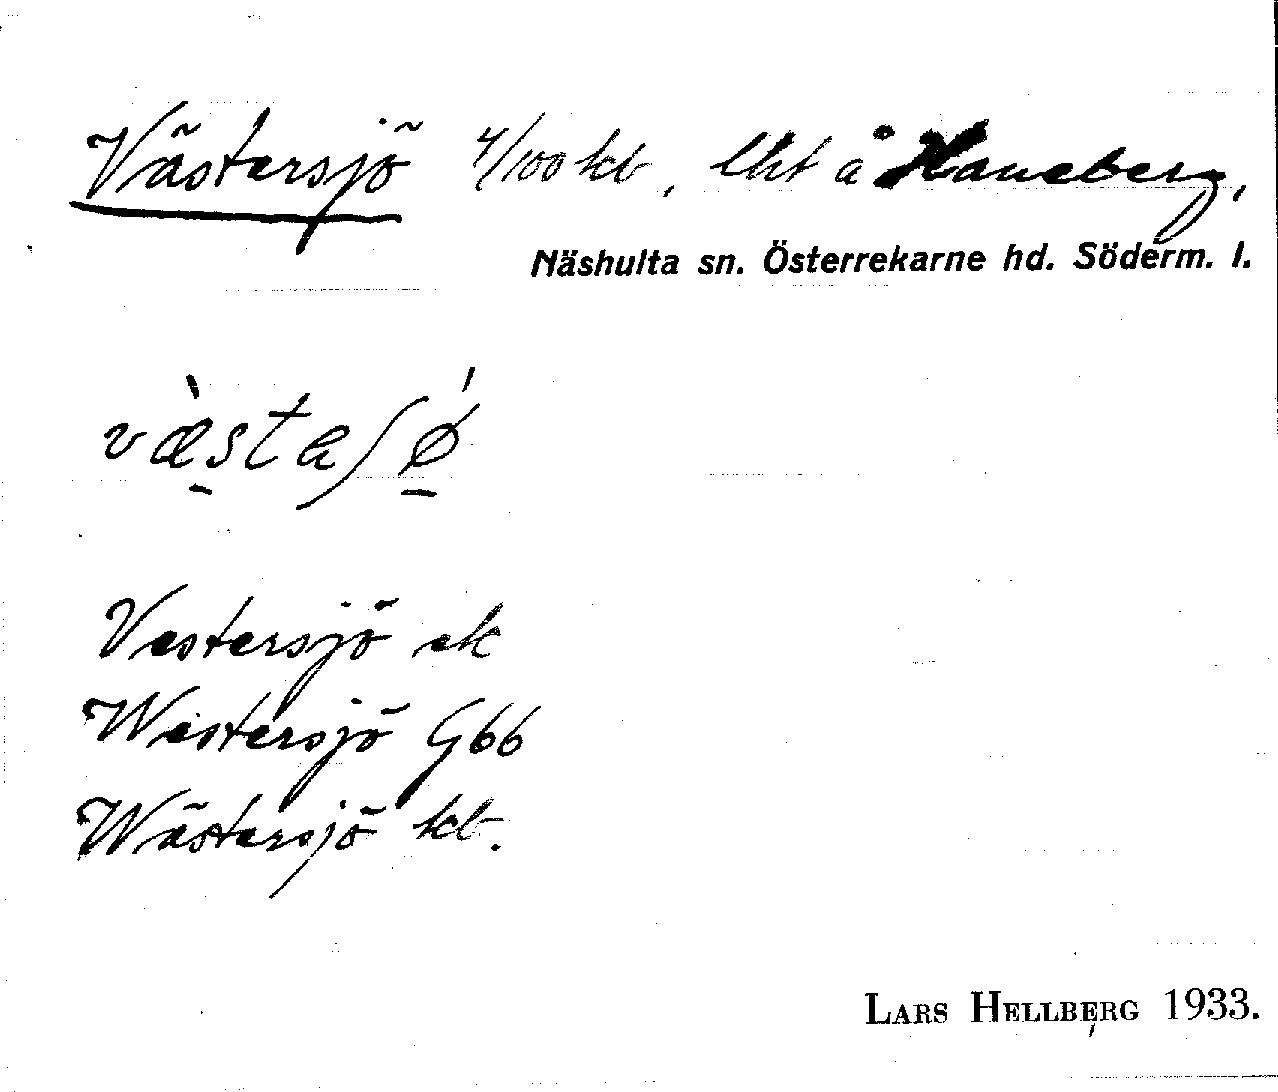 Västersjö 4/100 kb, lht å Haneberg,
Näshulta sn. Österrekarne hd. Söderm. l.
væ̀staʃǿ
Vestersjö ek
Westersjö G66
Wästersjö kb.
LARS HELLBERG 1933.